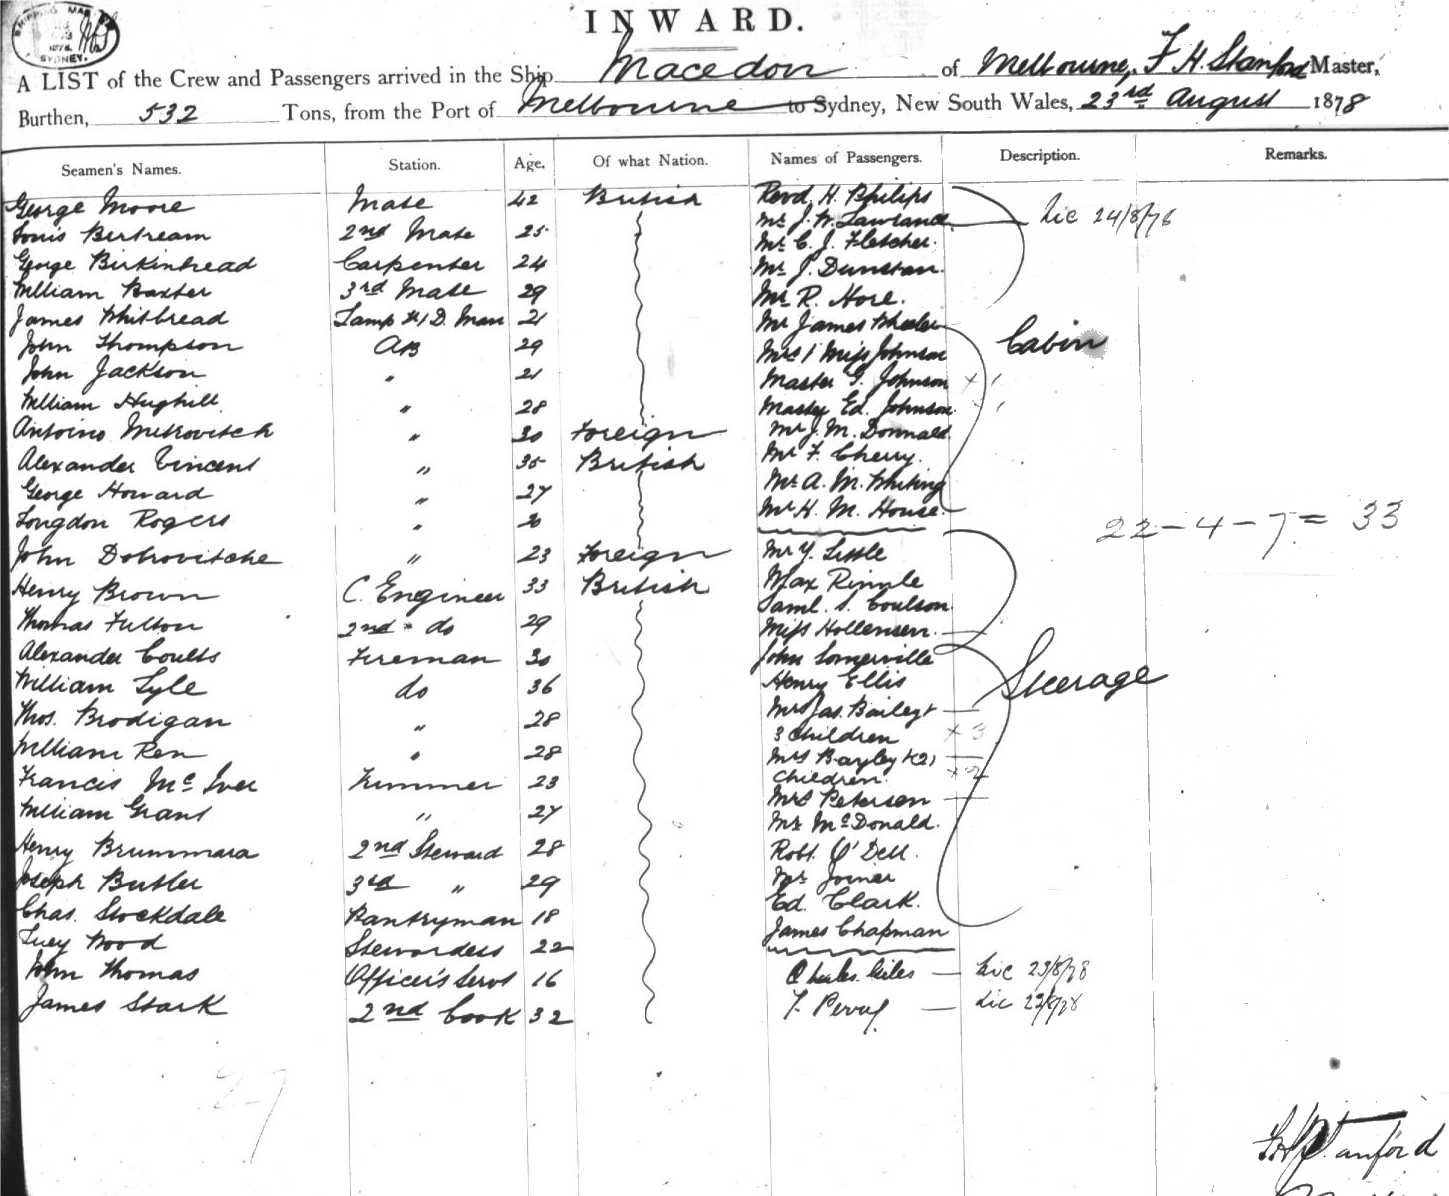 SHIPPING MAS
1878
SYDNEY.
INWARD.
A LIST of the Crew and Passengers arrived in the Ship Macedon of Melbourne, F. H. Stanford Master,
Burthen, 532 Tons, from the Port of Melbourne to Sydney, New South Wales, 23rd August 1878
Seamen's Names. Station. Age. Of what Nation. Names of Passengers. Description. Remarks.
George Moore Mate 42 British Revd H. Philips
Mr J. W. Lawrance Lic 24/8/78
Louis Bertream 2nd Mate 25 Mr C. J. Fletcher.
George Birkinhead Carpenter 24 Mr J. Dunstan.
William Baxter 3rd Mate 29 Mr R. Hore.
James Whitbread Lamp & D. Man 21 Mr James Wheeler
John Thompson AB 29 Mrs & Miss Johnson Cabin
John Jackson " 21 Master G. Johnson x 1
William Hughill " 28 Master Ed. Johnson
Antoino Mitrovitch " 30 Foreign Mr J. M. Donnald
Alexander Vincent " 35 British Mr F. Cherry.
George Howard " 27 Mr A. M. Whiting
Longdon Rogers " 20 Mr H. M. House. 22 - 4 - 7 = 33
John Dobrovitche " 23 Foreign Mr Y. Little
Henry Brown C. Engineer 33 British Max
Saml. S. Coulson
Thomas Fulton 2nd " do 29 Miss Hollensen.
Alexander Coults Fireman 30 John Somerville
William Lyle do 36 Henry Ellis Steerage
Thos. Brodigan " 28 Mrs Jas. Bailey &
3 Children x 3
William Ren " 28 Mrs Bayley & (2)
Francis McIver Trimmer 23 Children. x 2
William Grant " 27 Mrs Petersen
Mr McDonald.
Henry Brummara 2nd Steward 28 Robt. O'Dell.
Joseph Butler 3rd " 29 Mr Joiner
Chas. Stockdale Pantryman 18 Ed. Clark.
Lucy Wood Stewardess 22 James Chapman
John Thomas Officer's Servt 16 Charles Giles Lic 23/8/78
James Stark 2nd Cook 32 Lic 23/8/78
27
F H Stanford